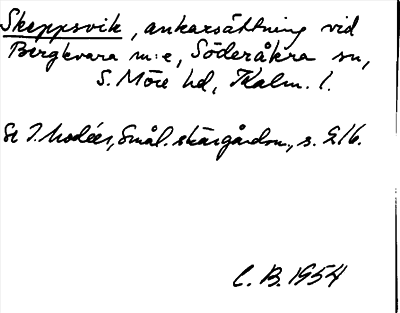 Skeppsvik, ankarsättning vid
Bergkvara m:e, Söderåkra sn,
S. Möre hd, Kalm. l.
Se I. Modéer, Smål. skärgårdsn., s. 216.
C. B. 1954